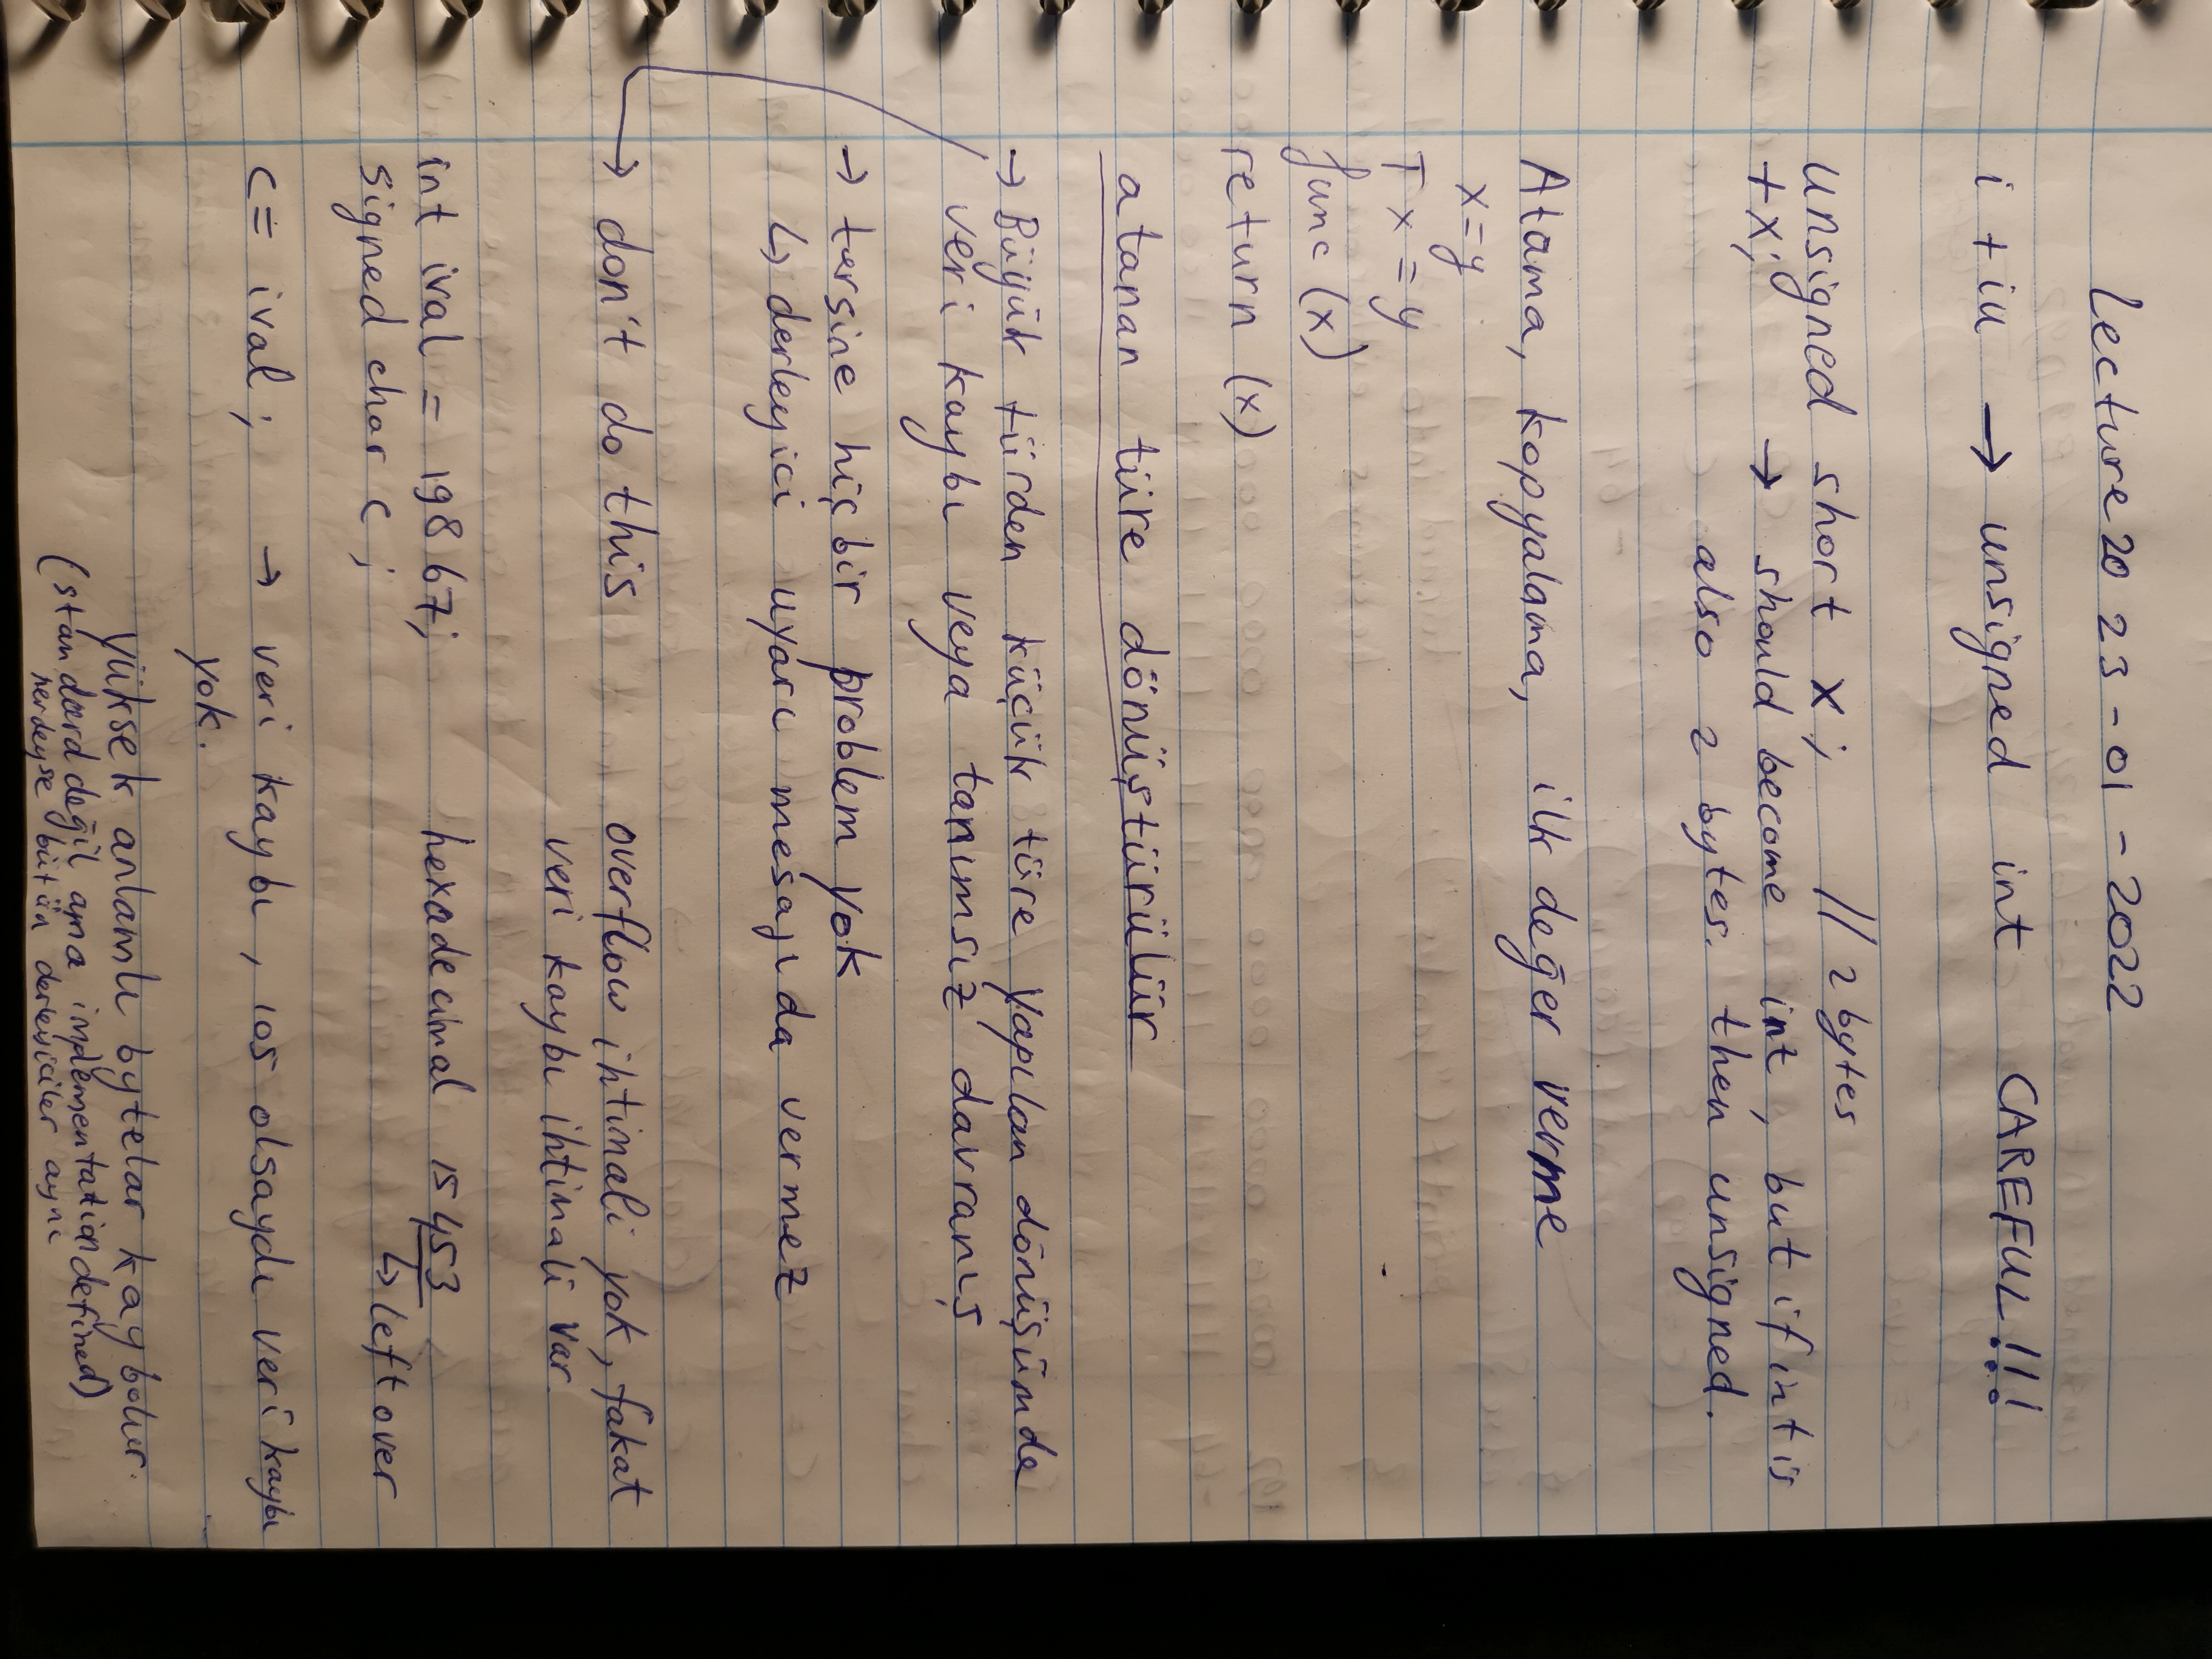 Lecture 20 23-01-2022
i + iu → unsigned int CAREFUL!!!
unsigned short x; // 2 bytes
+x; → should become int, but if int is
also 2 bytes. then unsigned.
Atama, kopyalama, ilk değer verme
x=y
T x = y
func (x)
return (x)
atanan türe dönüştürülür
→ Büyük türden küçük türe yapılan dönüşümde
veri kaybı veya tanımsız davranış
→ tersine hiçbir problem yok
↳ derleyici uyarı mesajıda vermez
→ don't do this overflow ihtimali yok, fakat
veri kaybı ihtimali var.
int ival = 19867; hexadecimal 15453
signed char c; ↳ left over
c = ival; → veri kaybı, 105 olsaydı veri kaybı
yok.
yüksek anlamlı bytelar kaybolur.
(standard değil ama implementation defined)
nerdeyse bütün derleyiciler aynı